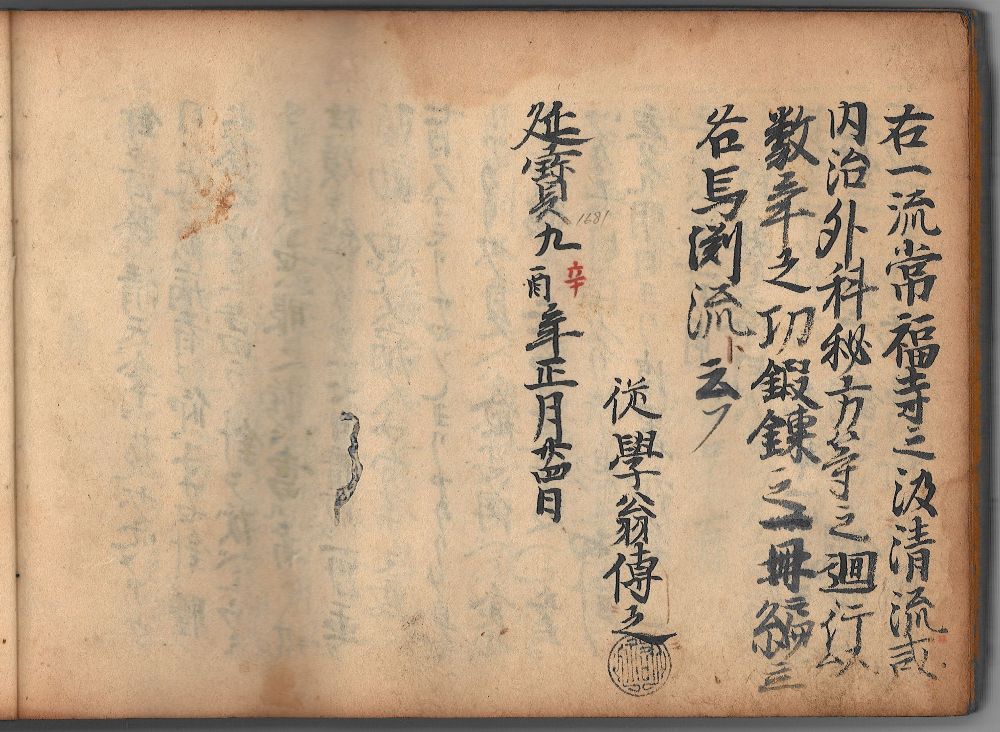 右一流常福寺之汲清流或
内治外科秘方等之廻行以
数年之功鍛錬之一冊編立
名馬渕流ト云フ
従學翁傳之
延寳九辛酉年正月廿四日
1681